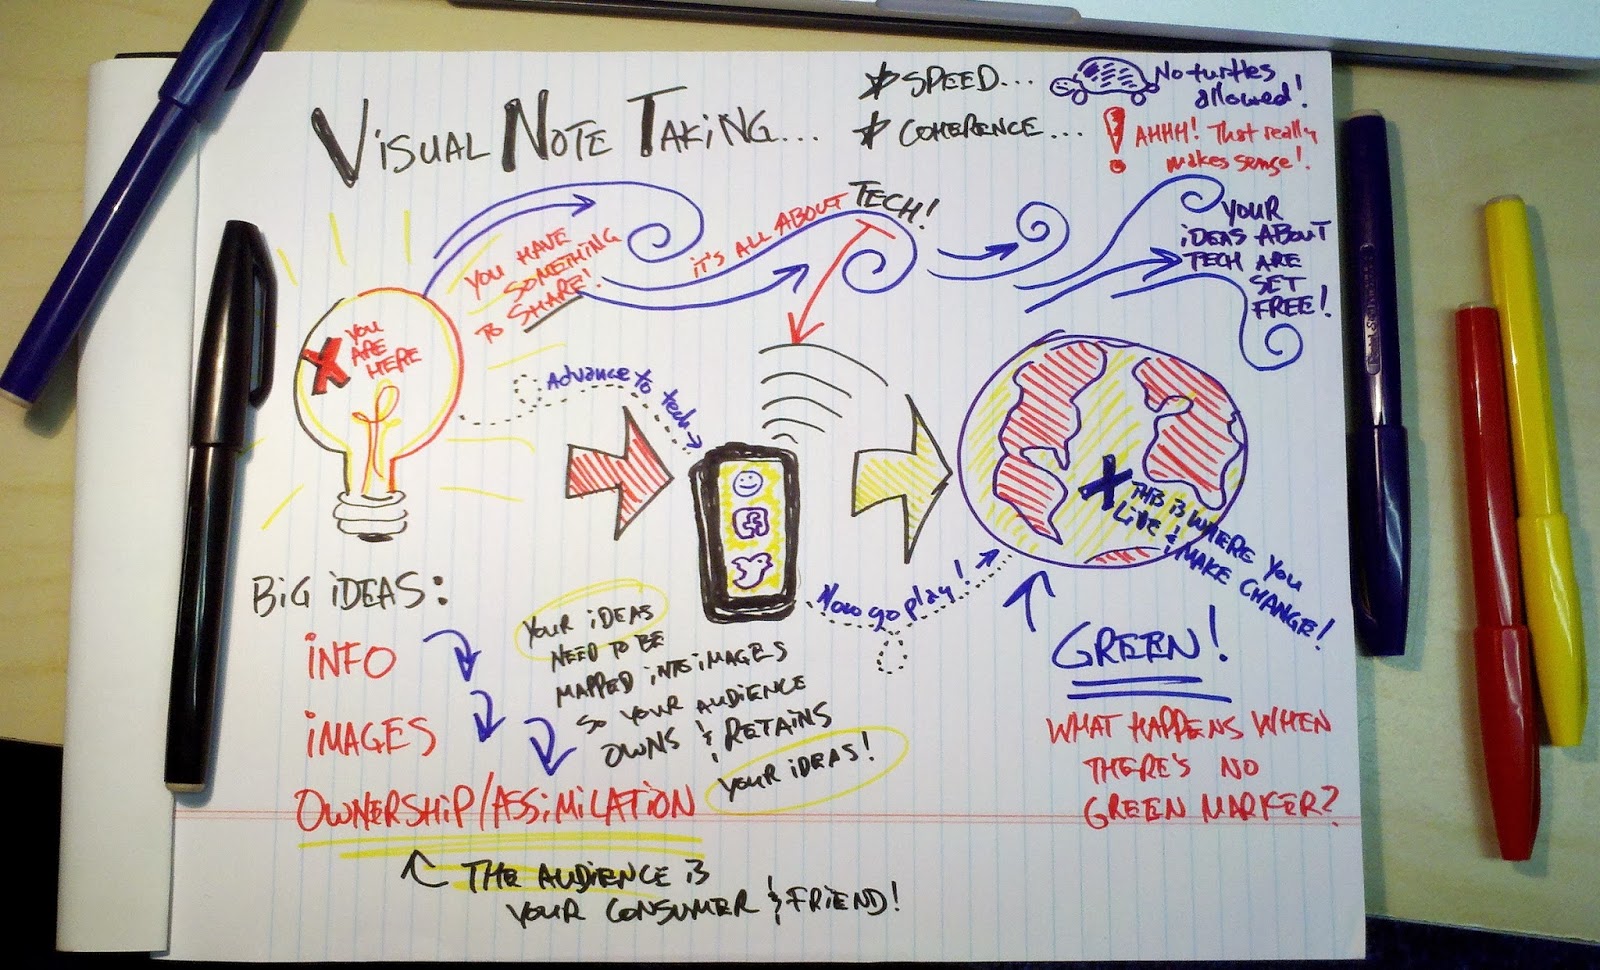 VISUAL NOTE TAKING...
* SPEED...
No turtles
allowed!
* COHERENCE...
! AHHH! That really
makes sense!
YOU HAVE
SOMETHING
TO SHARE!
IT'S ALL ABOUT TECH!
YOUR
IDEAS ABOUT
TECH ARE
SET
FREE!
X YOU
ARE
HERE
Advance to tech
X THIS IS WHERE YOU
LIVE & MAKE CHANGE!
Now go play!
BIG IDEAS:
INFO
IMAGES
OWNERSHIP/ASSIMILATION
THE AUDIENCE IS
YOUR CONSUMER & FRIEND!
YOUR IDEAS
NEED TO BE
MAPPED INTO IMAGES
SO YOUR AUDIENCE
OWNS & RETAINS
YOUR IDEAS!
GREEN!
WHAT HAPPENS WHEN
THERE'S NO
GREEN MARKER?